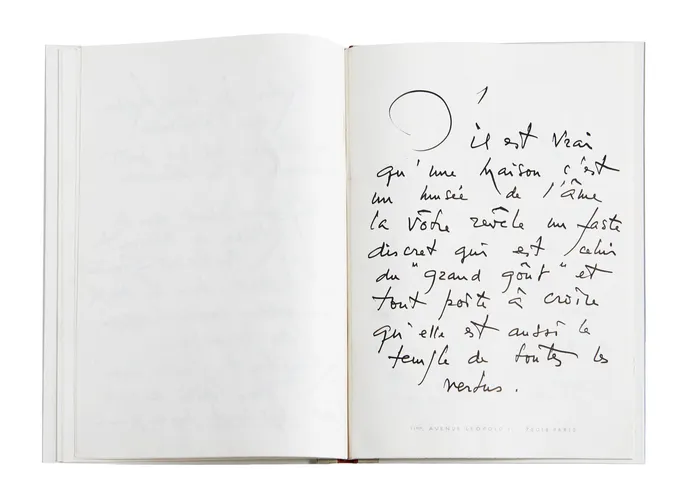 S'il est vrai
qu'une maison c'est
un musée de l'âme
la vôtre revèle un faste
discret qui est celui
du "grand goût" et
tout porte à croire
qu'elle est aussi le
temple de toutes les
vertus.
AVENUE LÉOPOLD II 75016 PARIS